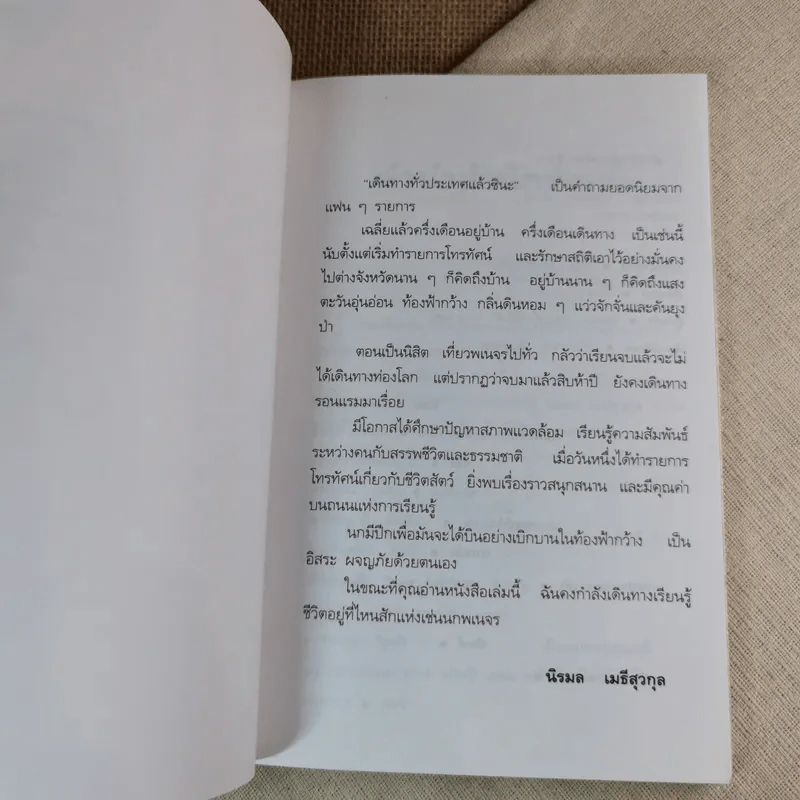 "เดินทางทั่วประเทศแล้วซินะ" เป็นคำถามยอดนิยมจาก
แฟน ๆ รายการ
เฉลี่ยแล้วครึ่งเดือนอยู่บ้าน ครึ่งเดือนเดินทาง เป็นเช่นนี้
นับตั้งแต่เริ่มทำรายการโทรทัศน์ และรักษาสถิติเอาไว้อย่างมั่นคง
ไปต่างจังหวัดนาน ๆ ก็คิดถึงบ้าน อยู่บ้านนาน ๆ ก็คิดถึงแสง
ตะวันอุ่นอ่อน ท้องฟ้ากว้าง กลิ่นดินหอม ๆ แว่วจักจั่นและคันยุง
ป่า
ตอนเป็นนิสิต เที่ยวพเนจรไปทั่ว กลัวว่าเรียนจบแล้วจะไม่
ได้เดินทางท่องโลก แต่ปรากฏว่าจบมาแล้วสิบห้าปี ยังคงเดินทาง
รอนแรมมาเรื่อย
มีโอกาสได้ศึกษาปัญหาสภาพแวดล้อม เรียนรู้ความสัมพันธ์
ระหว่างคนกับสรรพชีวิตและธรรมชาติ เมื่อวันหนึ่งได้ทำรายการ
โทรทัศน์เกี่ยวกับชีวิตสัตว์ ยิ่งพบเรื่องราวสนุกสนาน และมีคุณค่า
บนถนนแห่งการเรียนรู้
นกมีปีกเพื่อมันจะได้บินอย่างเบิกบานในท้องฟ้ากว้าง เป็น
อิสระ ผจญภัยด้วยตนเอง
ในขณะที่คุณอ่านหนังสือเล่มนี้ ฉันคงกำลังเดินทางเรียนรู้
ชีวิตอยู่ที่ไหนสักแห่งเช่นนกพเนจร
นิรมล เมธีสุวกุล